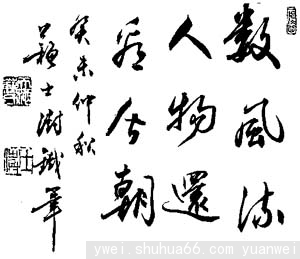 數風流
人物還
看今朝
癸未仲秋
蘇士澍筆
ywei.shuhua66.com yuanwei